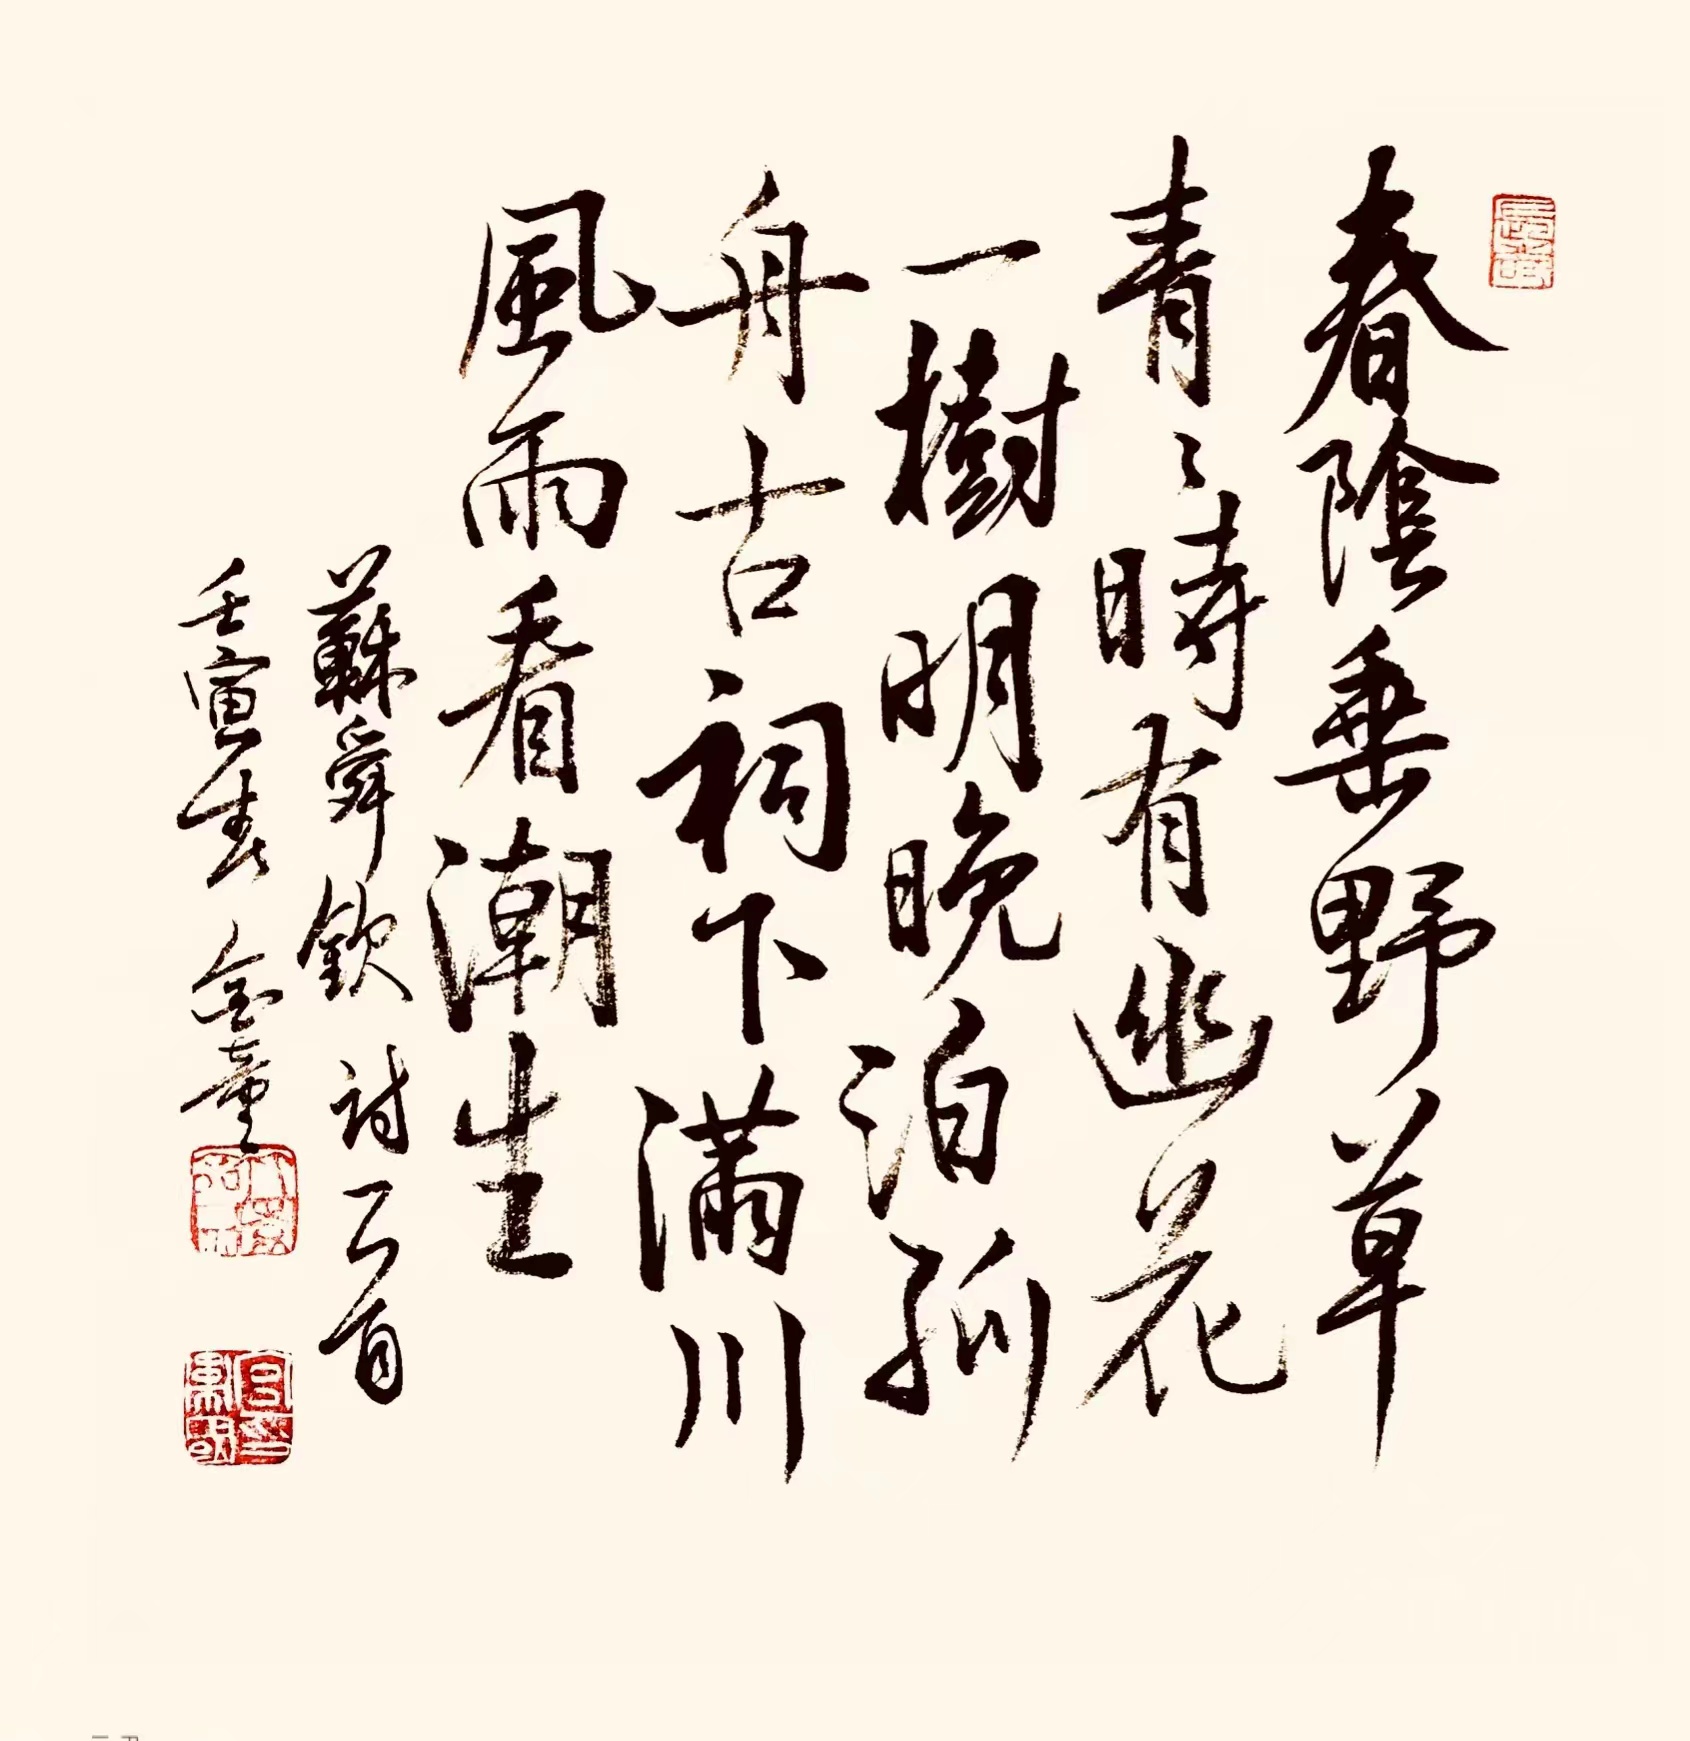 春陰垂野草
青〻時有幽花
一樹明晚泊孤
舟古祠下滿川
風雨看潮生
蘇舜欽詩一首
壬寅春